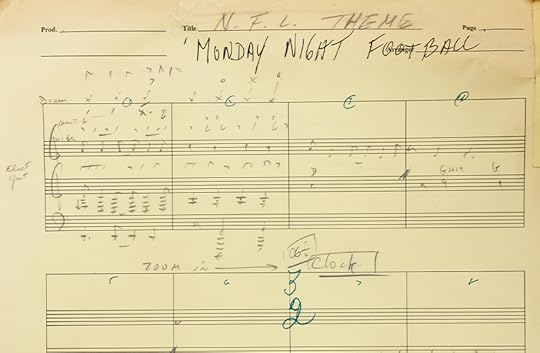 Prod. Title N.F.L. THEME Page
'MONDAY NIGHT FOOTBALL
Drum
1 2 3 4
Elect
Guit
ZOOM in Clock
5 6 7 8
3
2